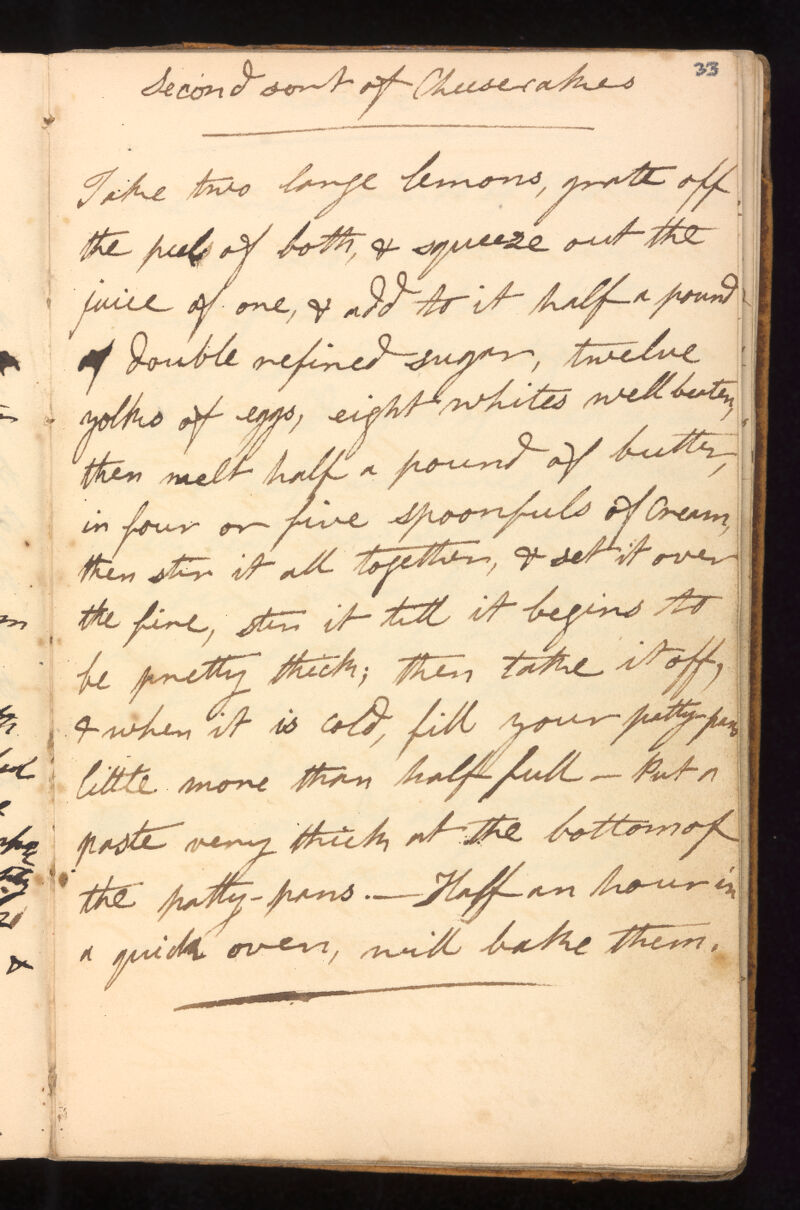 33
Second sort of Cheesecakes
Take two large lemons, grate off
the peel of both, & squeeze out the
juice of one, & add to it half a pound
of double refined sugar, twelve
yolks of eggs, eight whites well beaten,
then melt half a pound of butter,
in four or five spoonfuls of Cream,
then stir it all together, & set it over
the fire, stir it till it begins to
be pretty thick; then take it off,
& when it is cold, fill your patty-pans
little more than half full – Put a
paste very thick at the bottom of
the patty-pans. – Half an hour in
a quick oven, will bake them.